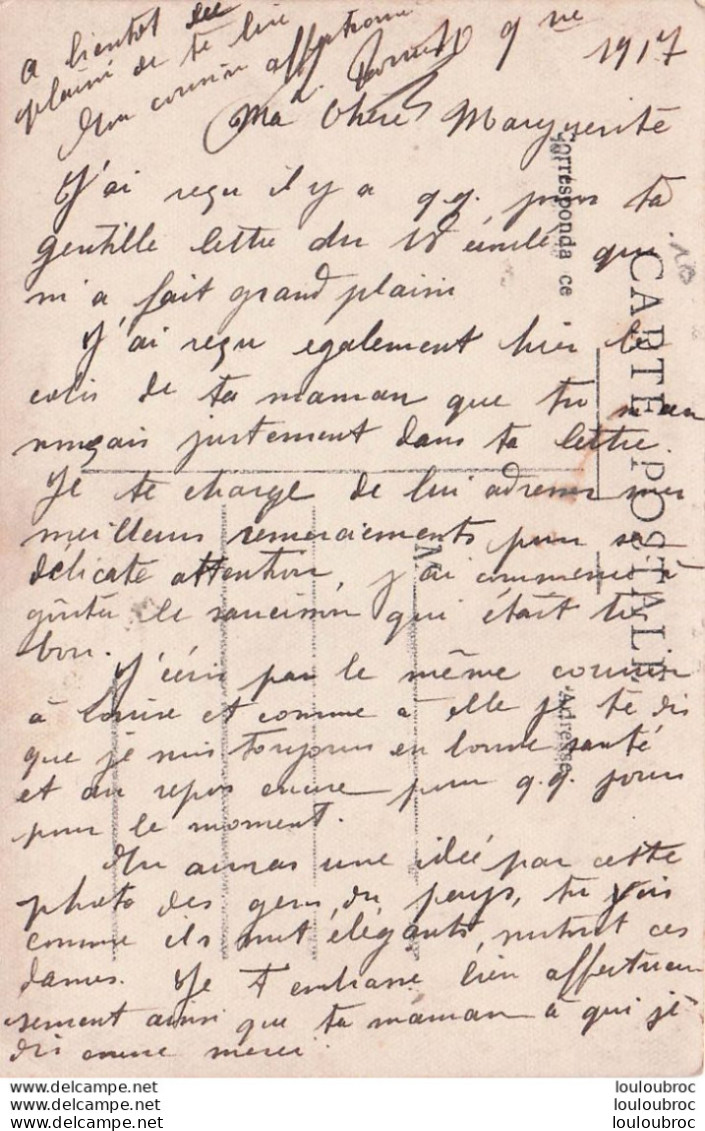 9 bre 1917
Ma Chère Marguerite
J'ai reçu il y a qq. jours ta
gentille lettre du 18 écoulé qui
m'a fait grand plaisir
J'ai reçu également hier le
colis de ta maman que tu m'an
nonçais justement dans ta lettre.
Je te charge de lui adresser mes
meilleurs remerciements pour sa
délicate attention, j'ai commencé à
goûter le saucisson qui était très
bon.
J'écris par le même courrier
à Louise et comme à elle je te dis
que je suis toujours en bonne santé
et au repos encore pour q.q. jours
pour le moment.
Tu auras une idée par cette
photo des gens du pays, tu vois
comme ils sont élégants, surtout ces
dames. Je t'embrasse bien affectueu
sement ainsi que ta maman à qui je
dis encore merci.
A bientôt le
plaisir de te lire
Ton cousin affectionné
CARTE POSTALE
Corresponda ce
Adresse
M
louloubroc
louloubroc
louloubroc
www.delcampe.net
www.delcampe.net
www.delcampe.net